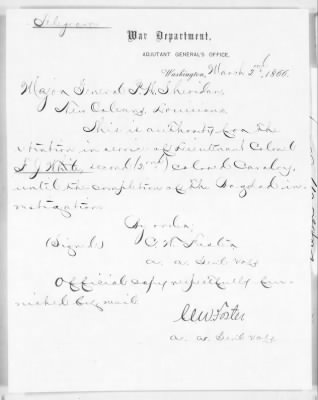 Telegram
War Department,
ADJUTANT GENERAL'S OFFICE,
Washington, March 2nd, 1866.
Major General P. H. Sheridan,
New Orleans, Louisiana
This is authority for the
retention in service of Lieutenant Colonel
F J White, second (2nd) colored Cavalry,
until the completion of the Bagdad in-
vestigation
By order,
(Signed) C. W. Foster
a. a. Genl Vols
Official copy respectfully fur-
nished by mail.
C W Foster
a. a. Genl Vols